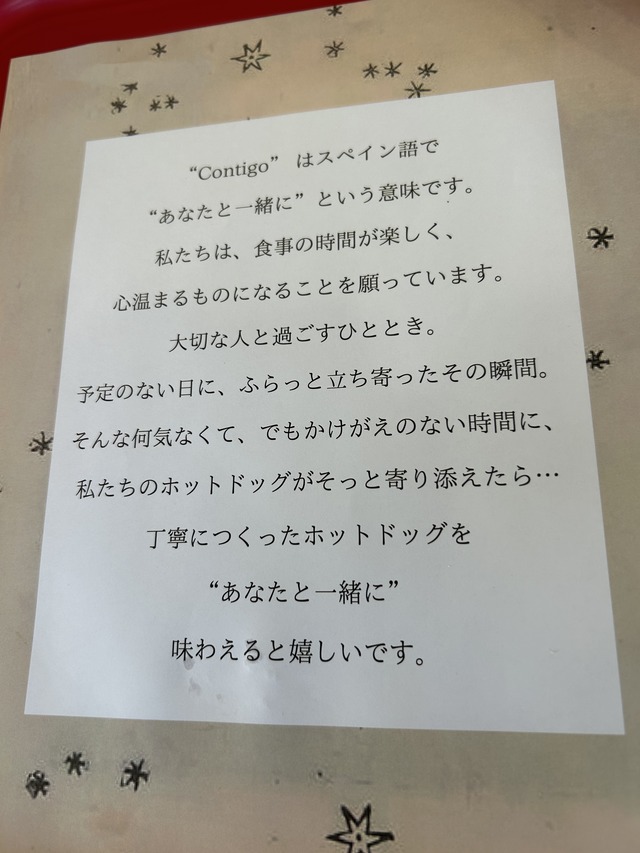 “Contigo” はスペイン語で
“あなたと一緒に” という意味です。
私たちは、食事の時間が楽しく、
心温まるものになることを願っています。
大切な人と過ごすひととき。
予定のない日に、ふらっと立ち寄ったその瞬間。
そんな何気なくて、でもかけがえのない時間に、
私たちのホットドッグがそっと寄り添えたら…
丁寧につくったホットドッグを
“あなたと一緒に”
味わえると嬉しいです。